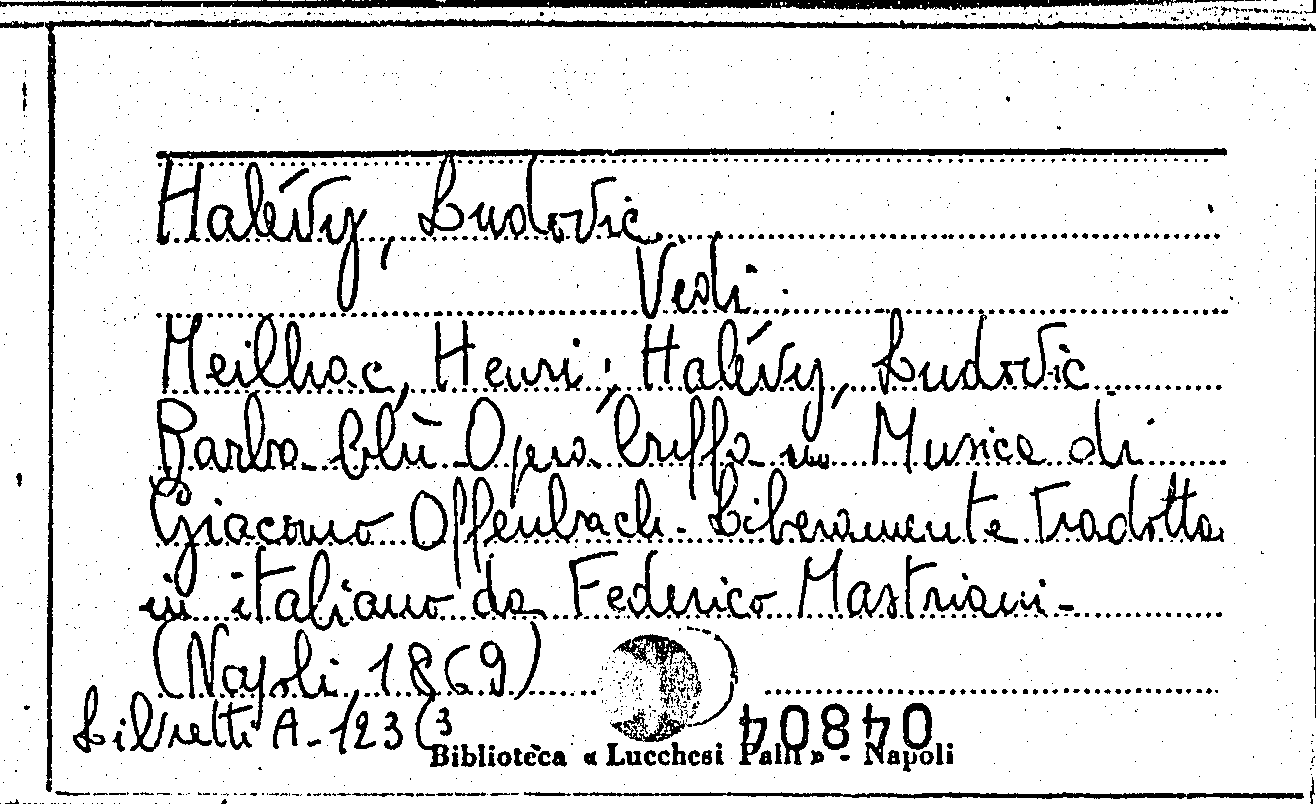 Halévy, Ludovic
Vedi:
Meilhac, Henri; Halévy, Ludovic
Barba-blù Opera buffa in Musica di
Giacomo Offenbach - Liberamente tradotta
in italiano da Federico Mastriani -
(Napoli, 1869)
Libretti A-123(3
04804
Biblioteca « Lucchesi Palli » - Napoli